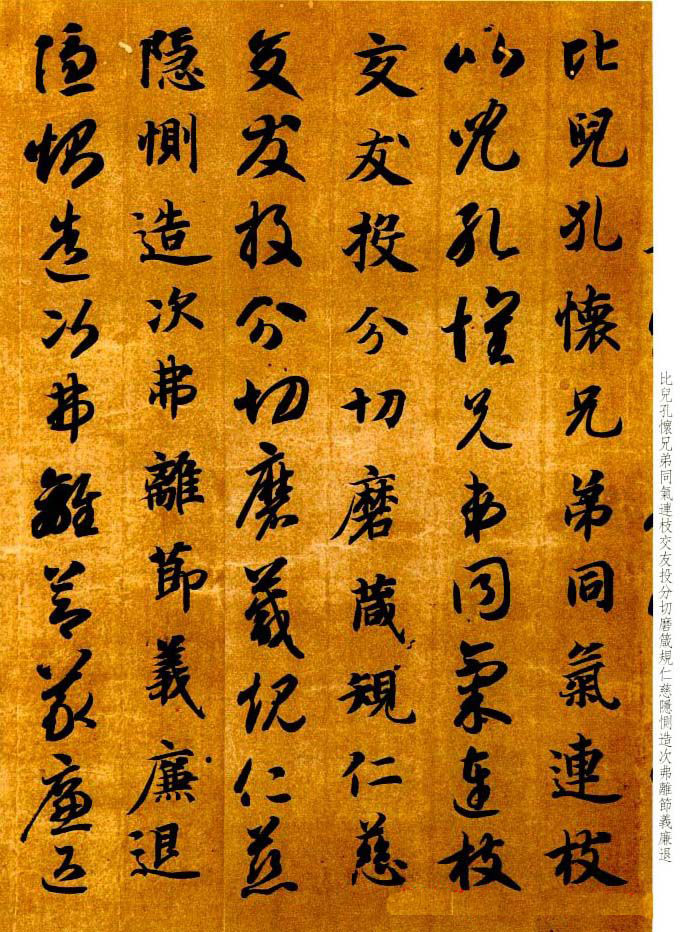 比兒孔懷兄弟同氣連枝
比兒孔懷兄弟同氣連枝
交友投分切磨箴規仁慈
交友投分切磨箴規仁慈
隱惻造次弗離節義廉退
隱惻造次弗離節義廉退
比兒孔懷兄弟同氣連枝交友投分切磨箴規仁慈隱惻造次弗離節義廉退